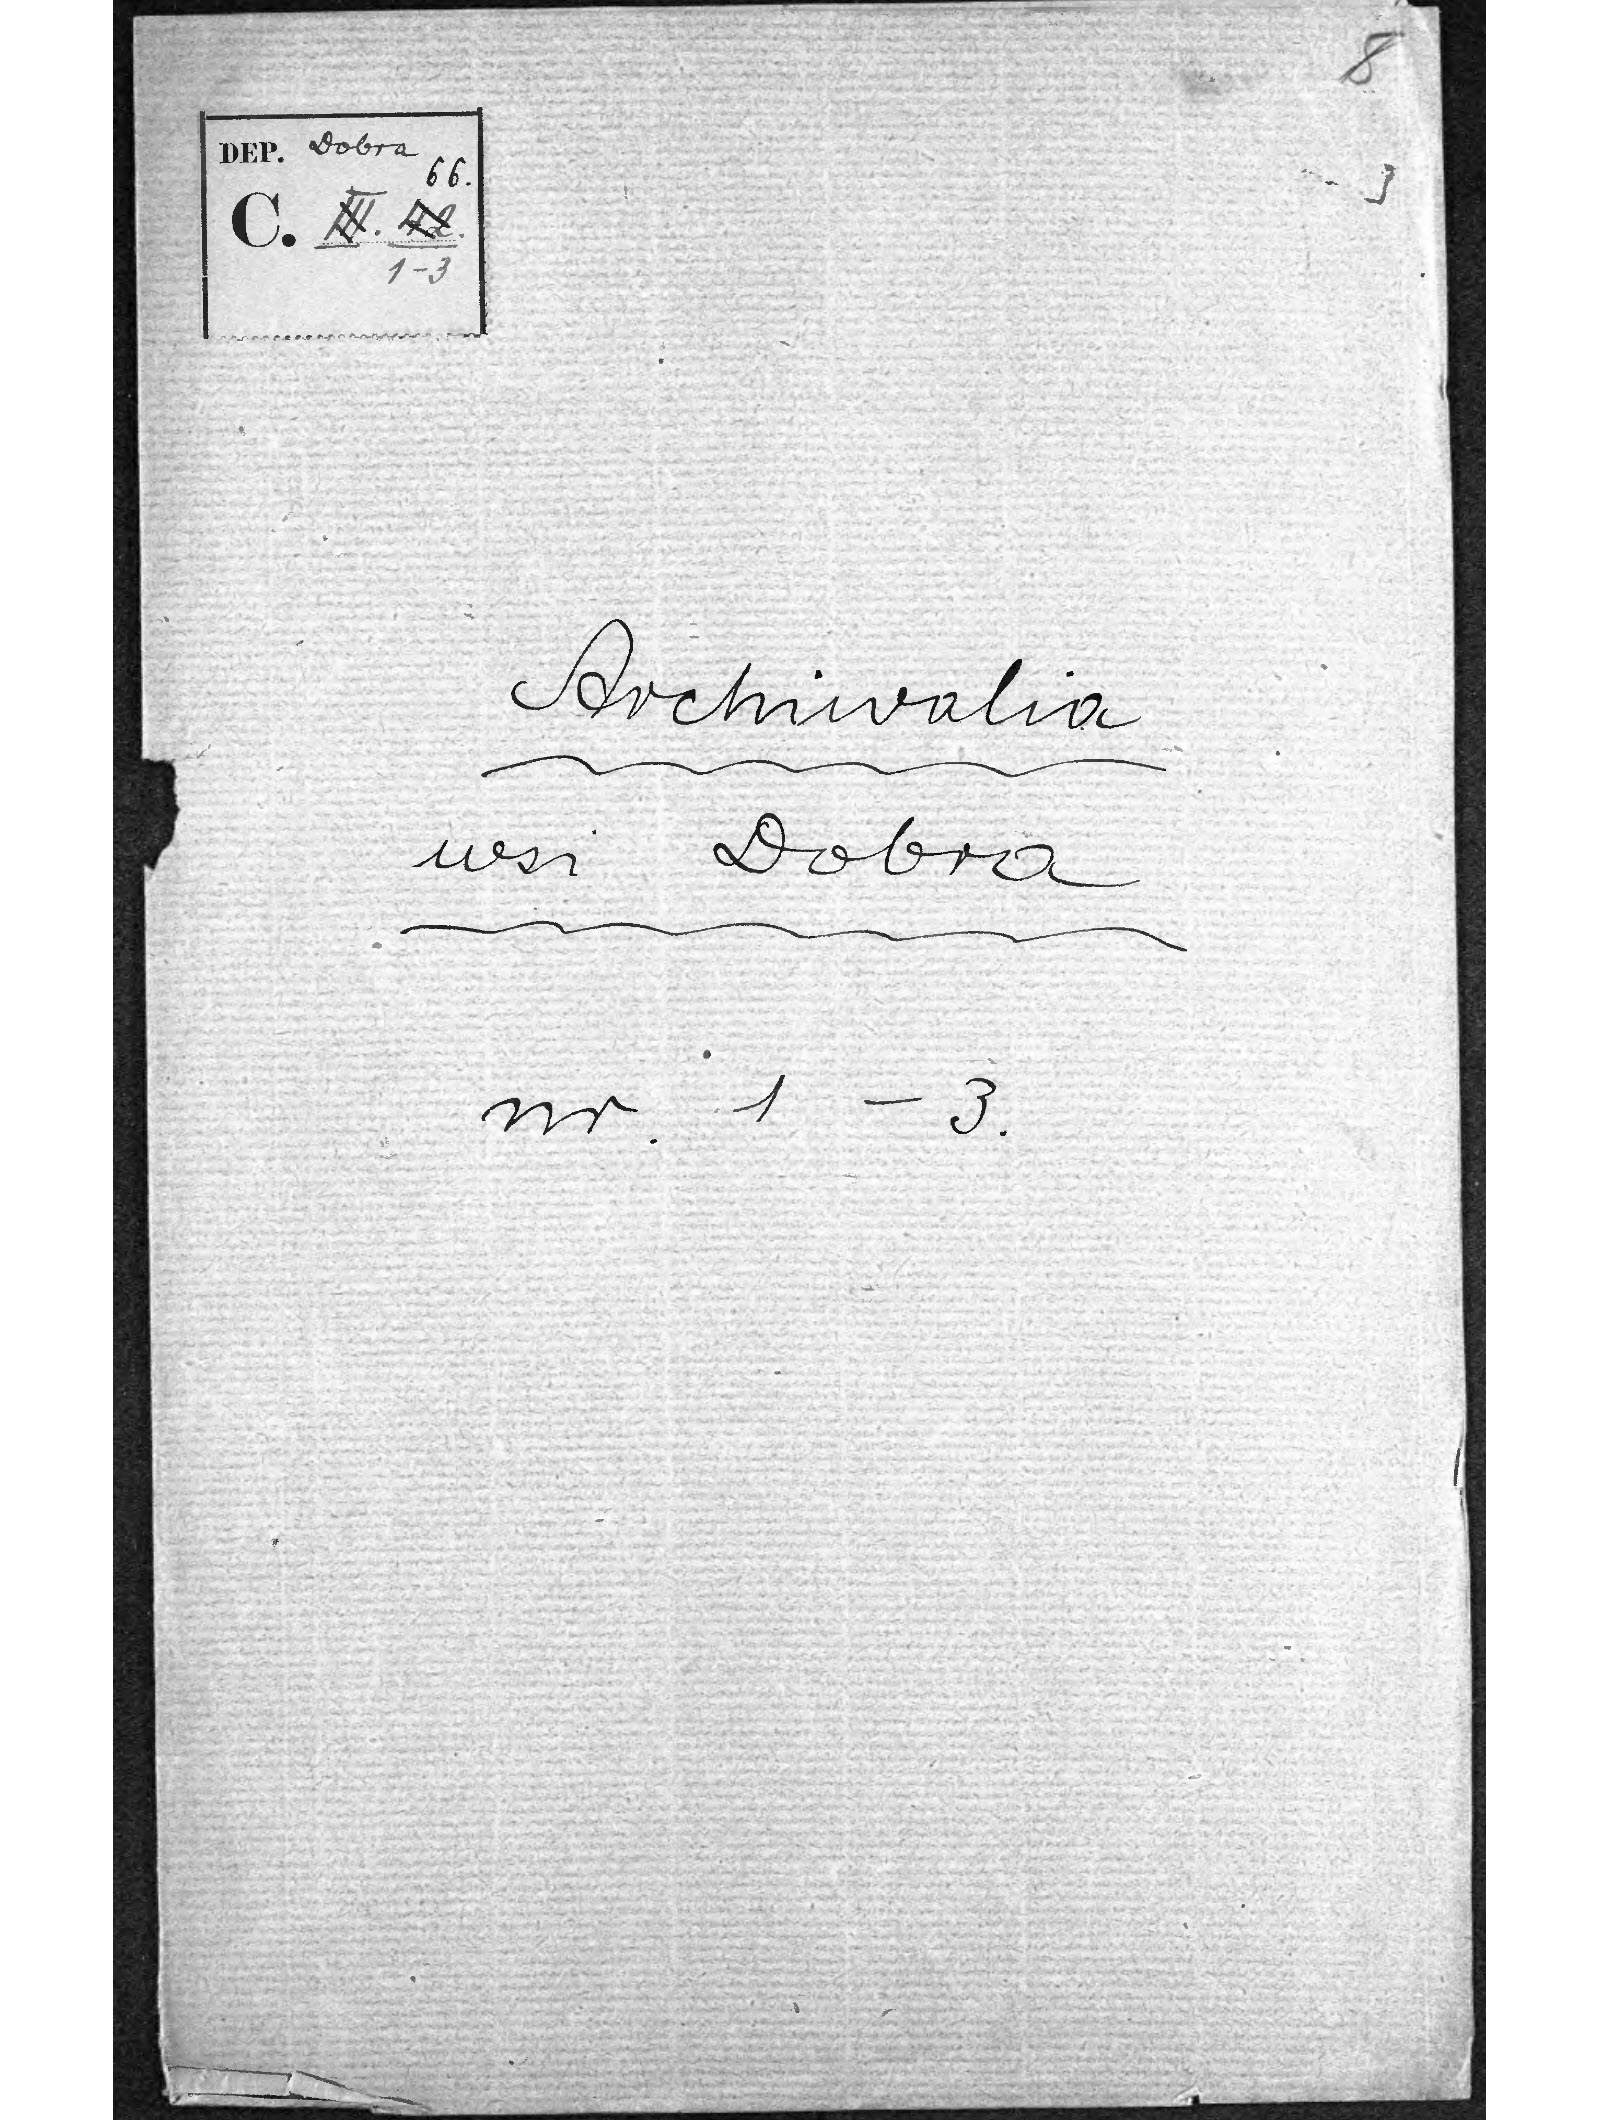 8
DEP. Dobra
66.
C. III.
1-3
Archiwalia
wsi Dobra
nr. 1 - 3.